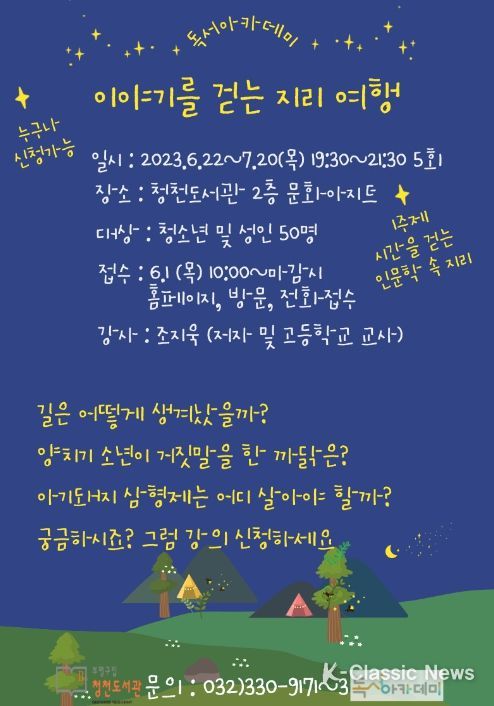 독서아카데미
이야기를 걷는 지리 여행
누구나
신청가능
일시 : 2023.6.22~7.20(목) 19:30~21:30 5회
장소 : 청천도서관 2층 문화아지트
대상 : 청소년 및 성인 50명
1주제
시간을 걷는
인문학 속 지리
접수 : 6.1 (목) 10:00~마감시
홈페이지, 방문, 전화접수
강사 : 조지욱 (저자 및 고등학교 교사)
길은 어떻게 생겨났을까?
양치기 소년이 거짓말을 한 까닭은?
아기돼지 삼형제는 어디 살아야 할까?
궁금하시죠? 그럼 강의 신청하세요
부평구립
청천도서관
문의 : 032)330-9171~3
독서아카데미
K-Classic News